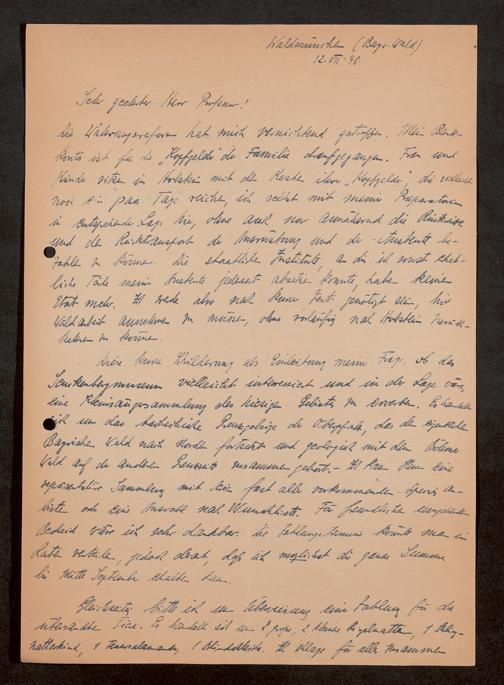 Waldmünchen (Bayr. Wald)
12. VII. 48.
Sehr geehrter Herr Professor!
die Währungsreform hat mich vernichtend getroffen. Mein Bank-
konto ist für die "Kopfgelder" der Familie draufgegangen. Frau und
Kinder sitzen in Holstein mit den Resten ihrer "Kopfgelder" die vielleicht
noch ein paar Tage reichen, ich selbst mit meinem Präparator
in entsprechender Lage hier, ohne auch nur annähernd die Rückreise
und den Rücktransport der Ausrüstung und der Ausbeute be-
zahlen zu können. Die staatlichen Institute, an die ich sonst erheb-
liche Teile meiner Ausbeute jederzeit absetzen konnte, haben keinen
Etat mehr. Ich werde also nach kurzer Zeit genötigt sein, hier
Waldarbeit annehmen zu müssen, ohne vorläufig nach Holstein zurück-
kehren zu können.
Diese kurze Schilderung als Einleitung meiner Frage, ob das
Senckenbergmuseum vielleicht interessiert und in der Lage wäre,
eine Kleinsäugersammlung des hiesigen Gebietes zu erwerben. Es handelt
sich um das tschechische Grenzgebirge der Oberpfalz, das den eigentlichen
Bayrischen Wald nach Norden fortsetzt und geologisch mit dem Böhmer
Wald auf der anderen Grenzseite zusammen gehört. - Ich kann Ihnen eine
repräsentative Sammlung mit fast allen vorkommenden Species an-
bieten oder eine Auswahl nach Wunschliste. Für freundlichen umgehenden
Bescheid wäre ich sehr dankbar. Die Zahlung könnte man in
Raten verteilen, jedoch derart, daß ich möglichst die ganze Summe
bis Mitte September erhalten kann.
Gleichzeitig bitte ich um Überweisung einer Zahlung für die
übersandten Tiere. Es handelt sich um 2 große, 2 kleine Ringelnattern, 1
1 Feuersalamander, 1 Blindschleiche. Ich für alles zusammen